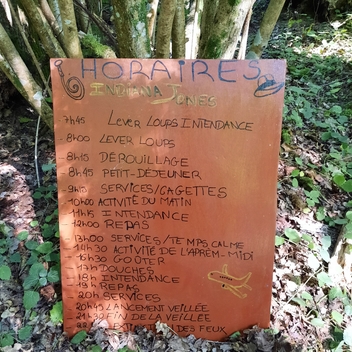 HORAIRES
INDIANA JONES
7H45 LEVER LOUPS INTENDANCE
8H00 LEVER LOUPS
8H15 DÉROUILLAGE
8H45 PETIT-DÉJEUNER
9H15 SERVICES/GAGETTES
10H00 ACTIVITÉ DU MATIN
11H15 INTENDANCE
12H00 REPAS
13H00 SERVICES/TEMPS CALME
14H30 ACTIVITÉ DE L'APREM-MIDI
16H30 GOÛTER
17H DOUCHES
18H INTENDANCE
19H REPAS
20H SERVICES
20H45 LANCEMENT VEILLÉE
21H30 FIN DE LA VEILLÉE
EXTINCTION DES FEUX